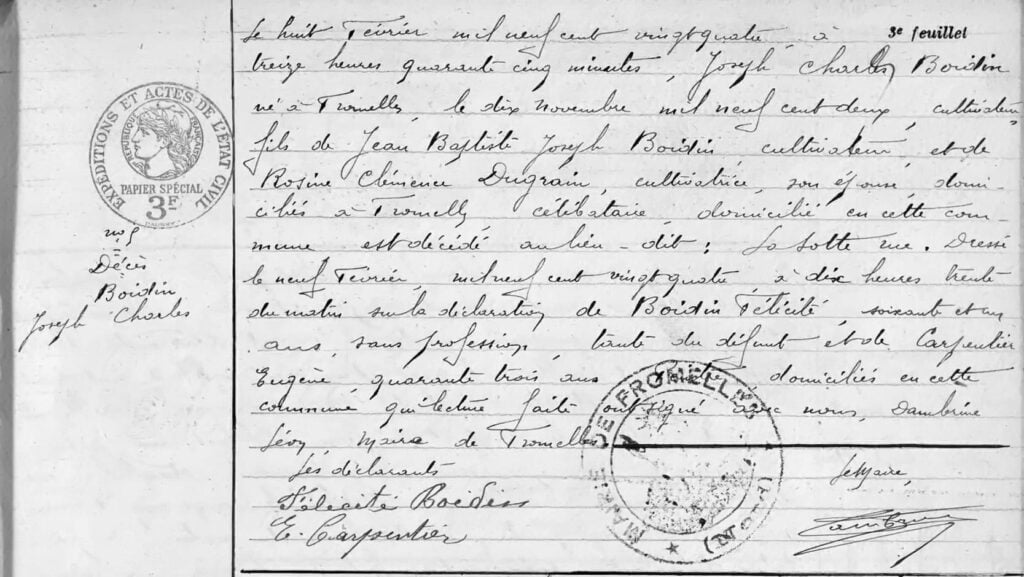 3e feuillet
Le huit Février mil neuf cent vingt quatre, à
treize heures quarante cinq minutes, Joseph Charles Boidin
né à Fromelles, le dix novembre mil neuf cent deux, cultivateur,
fils de Jean Baptiste Joseph Boidin cultivateur, et de
Rosine Clémence Dugrain, cultivatrice, son épouse, domi-
ciliés à Fromelles célibataire, domicilié en cette com-
mune est décédé au lieu-dit: La Sotte rue. Dressé
le neuf Février, mil neuf cent vingt quatre à dix heures trente
du matin sur la déclaration de Boidin Félicité, soixante et un
ans, sans profession, tante du défunt et de Carpentier
Eugène, quarante trois ans domiciliés en cette
commune qui lecture faite ont signé avec nous, Dambrine
Lévy, Maire de Fromelles
Les déclarants
Félicité Boidin
E. Carpentier
Le Maire,
EXPÉDITIONS ET ACTES DE L'ÉTAT CIVIL
RÉPUBLIQUE FRANÇAISE
PAPIER SPÉCIAL
3F
Décès
Boidin
Joseph Charles
MAIRIE DE FROMELLES